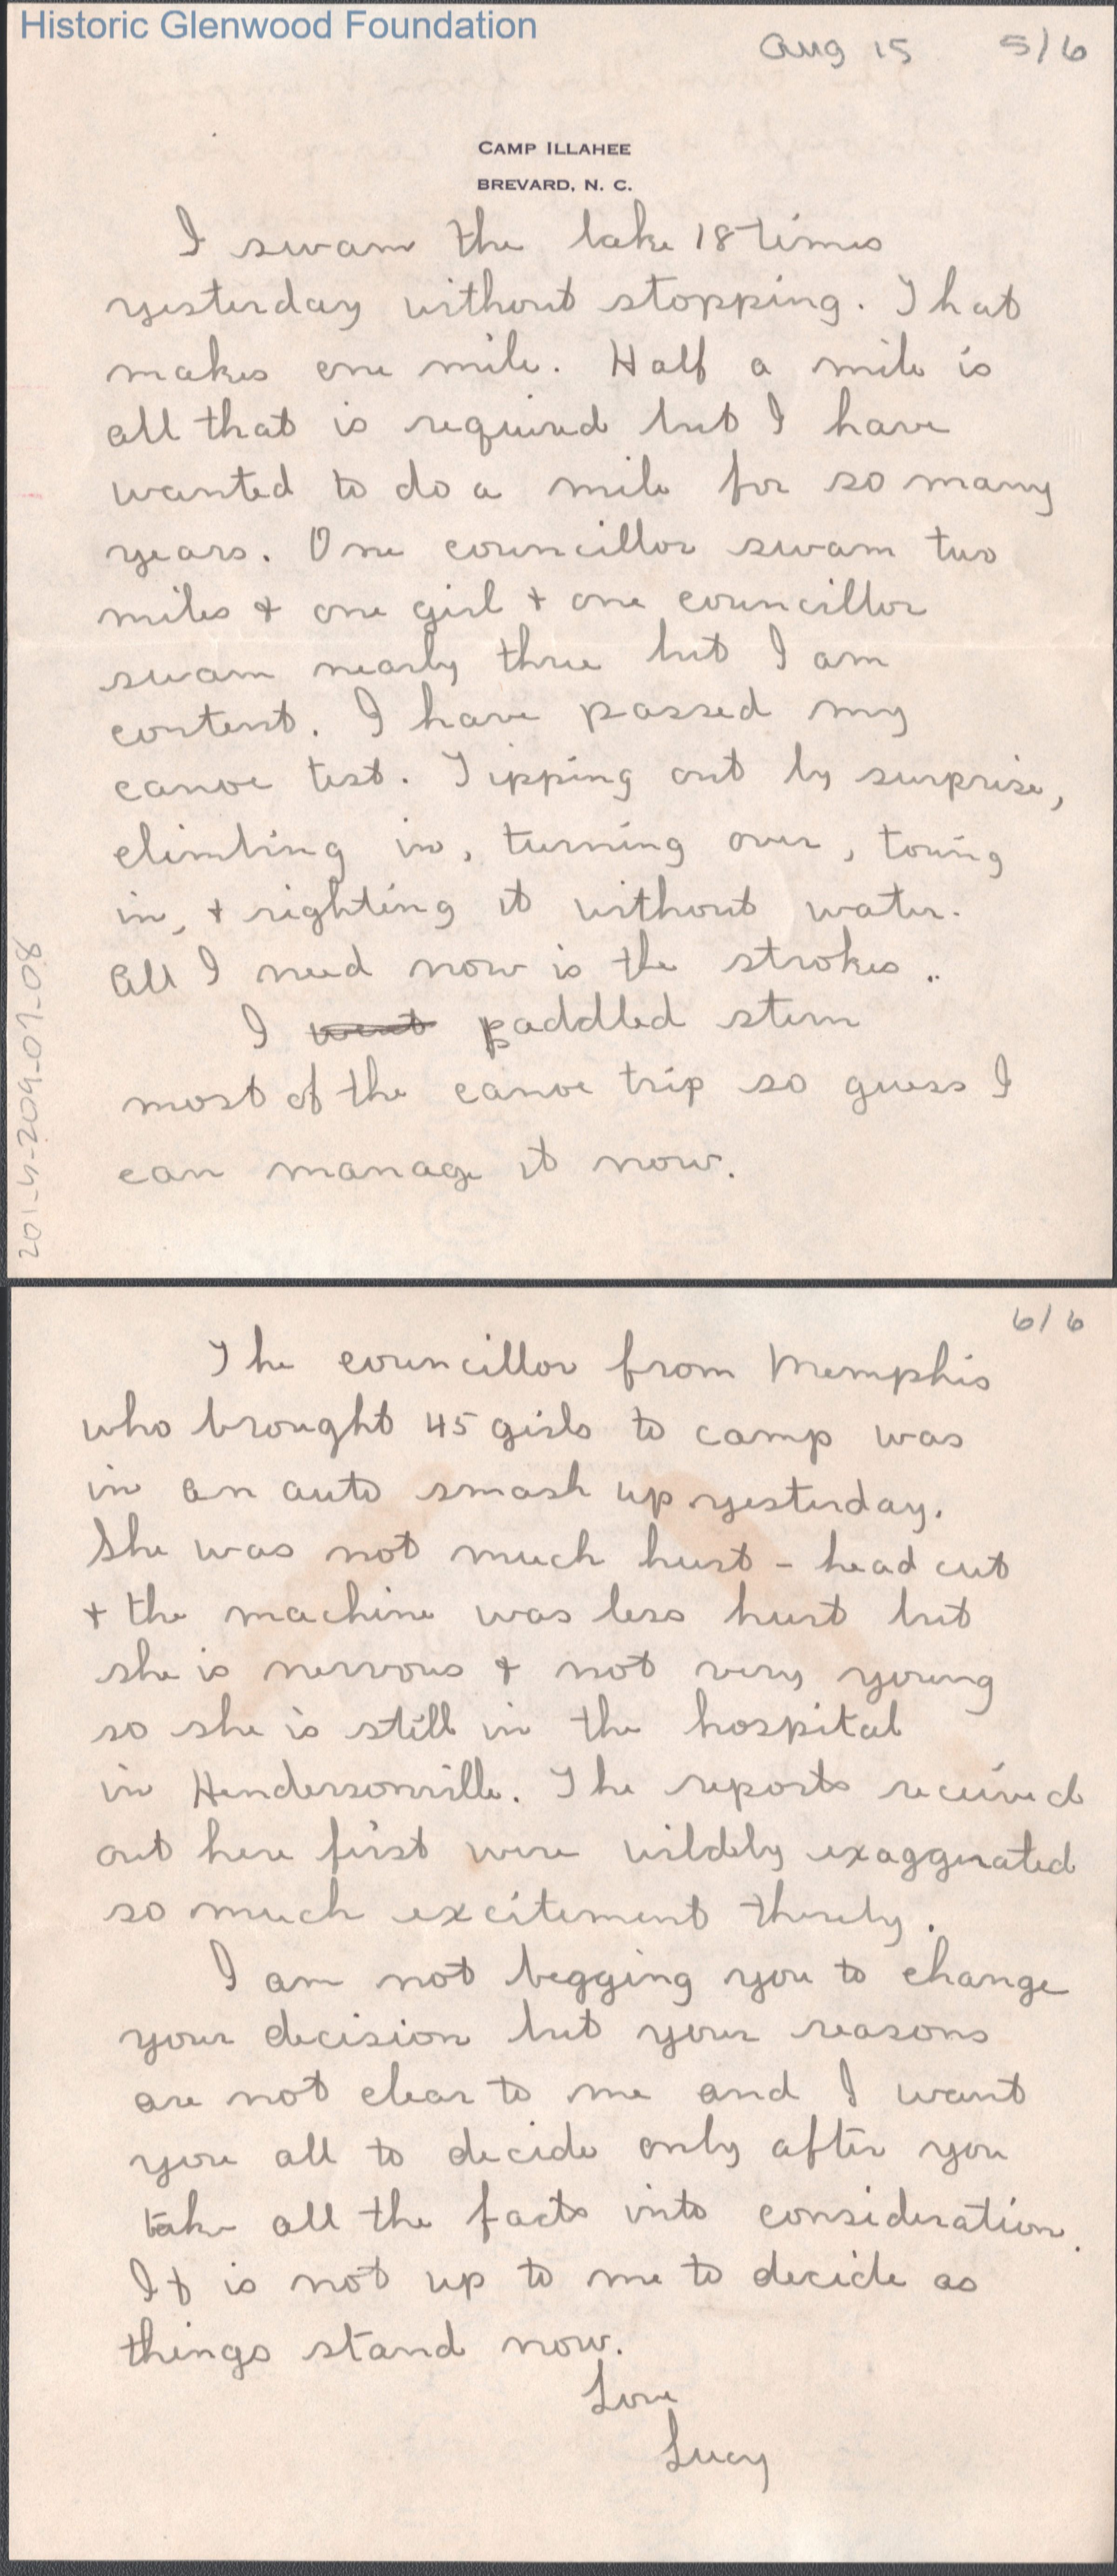 Historic Glenwood Foundation
Aug 15 5/6
CAMP ILLAHEE
BREVARD, N. C.
I swam the lake 18 times
yesterday without stopping. That
makes one mile. Half a mile is
all that is required but I have
wanted to do a mile for so many
years. One councillor swam two
miles & one girl & one councillor
swam nearly three but I am
content. I have passed my
canoe test. Tipping out by surprise,
climbing in, turning over, towing
in, & righting it without water.
All I need now is the strokes..
I went paddled stern
most of the canoe trip so guess I
can manage it now.
2014-209-07-08
6/6
The councillor from Memphis
who brought 45 girls to camp was
in an auto smash up yesterday.
She was not much hurt - head cut
& the machine was less hurt but
she is nervous & not very young
so she is still in the hospital
in Hendersonville. The reports received
out here first were wildly exaggerated
so much excitement thereby.
I am not begging you to change
your decision but your reasons
are not clear to me and I want
you all to decide only after you
take all the facts into consideration.
It is not up to me to decide as
things stand now.
Love
Lucy